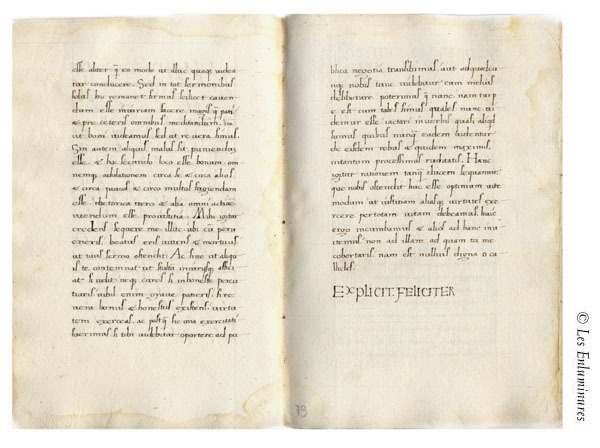 esse aliter q̃ eo modo ut illuc quoq; videa
tur conducere. Sed in tot sermonibus
solus hic remanet sermo
dum esse iniuriam facere magis q̃ pati
& pre ceteris omnibus meditandum.
ut boni videamur sed ut re vera simus.
Sin autem aliquis malus sit puniendus
esse. & hoc secundo loco esse bonum. om
nemq; adulationem circa se & circa alios
& circa paucos & circa multos fugiendam
esse. rhetorica vero & alia omni actione
utendum esse pro iustitia. Mihi igitur
credens sequere me illuc ubi cum perve
neris. beatus eris vivens & mortuus
ut tuus sermo ostendit. Ac sine ut aliqui
s te contemnat ut stultum iniuriisq; affici
at. si velit. neq; cures si inhoneste percu
tiaris. nihil enim grave patieris. si re
vera bonus & honestus existens. virtu
tem exerceas. ac postq̃ sic una exercitati
fuerimus si tibi videbitur oportere. ad pu
blica negotia transibimus aut ad qualcu
nq; nobis tunc videbitur cum melius
deliberare poterimus q̃ nunc. nam turp
e est cum tales simus quales nunc vi
demur esse. iactari in verbis quasi aliqd
simus quibus nunq̃ eadem videntur
de eisdem rebus & quidem maximis.
in tantum processimus ruditatis. Hanc
igitur rationem tanq̃ ducem sequamur
que nobis ostendit hunc esse optimum vite
modum. ut iustitiam aliasq; virtutes exer
cere per totam vitam debeamus. huic
ergo incumbamus & alios ad hanc inv
itemus. non ad illam ad quam tu me
cohortaris. nam est nullius digna o ca
llicles.
EXPLICIT. FELICITER
79
© Les Enluminures